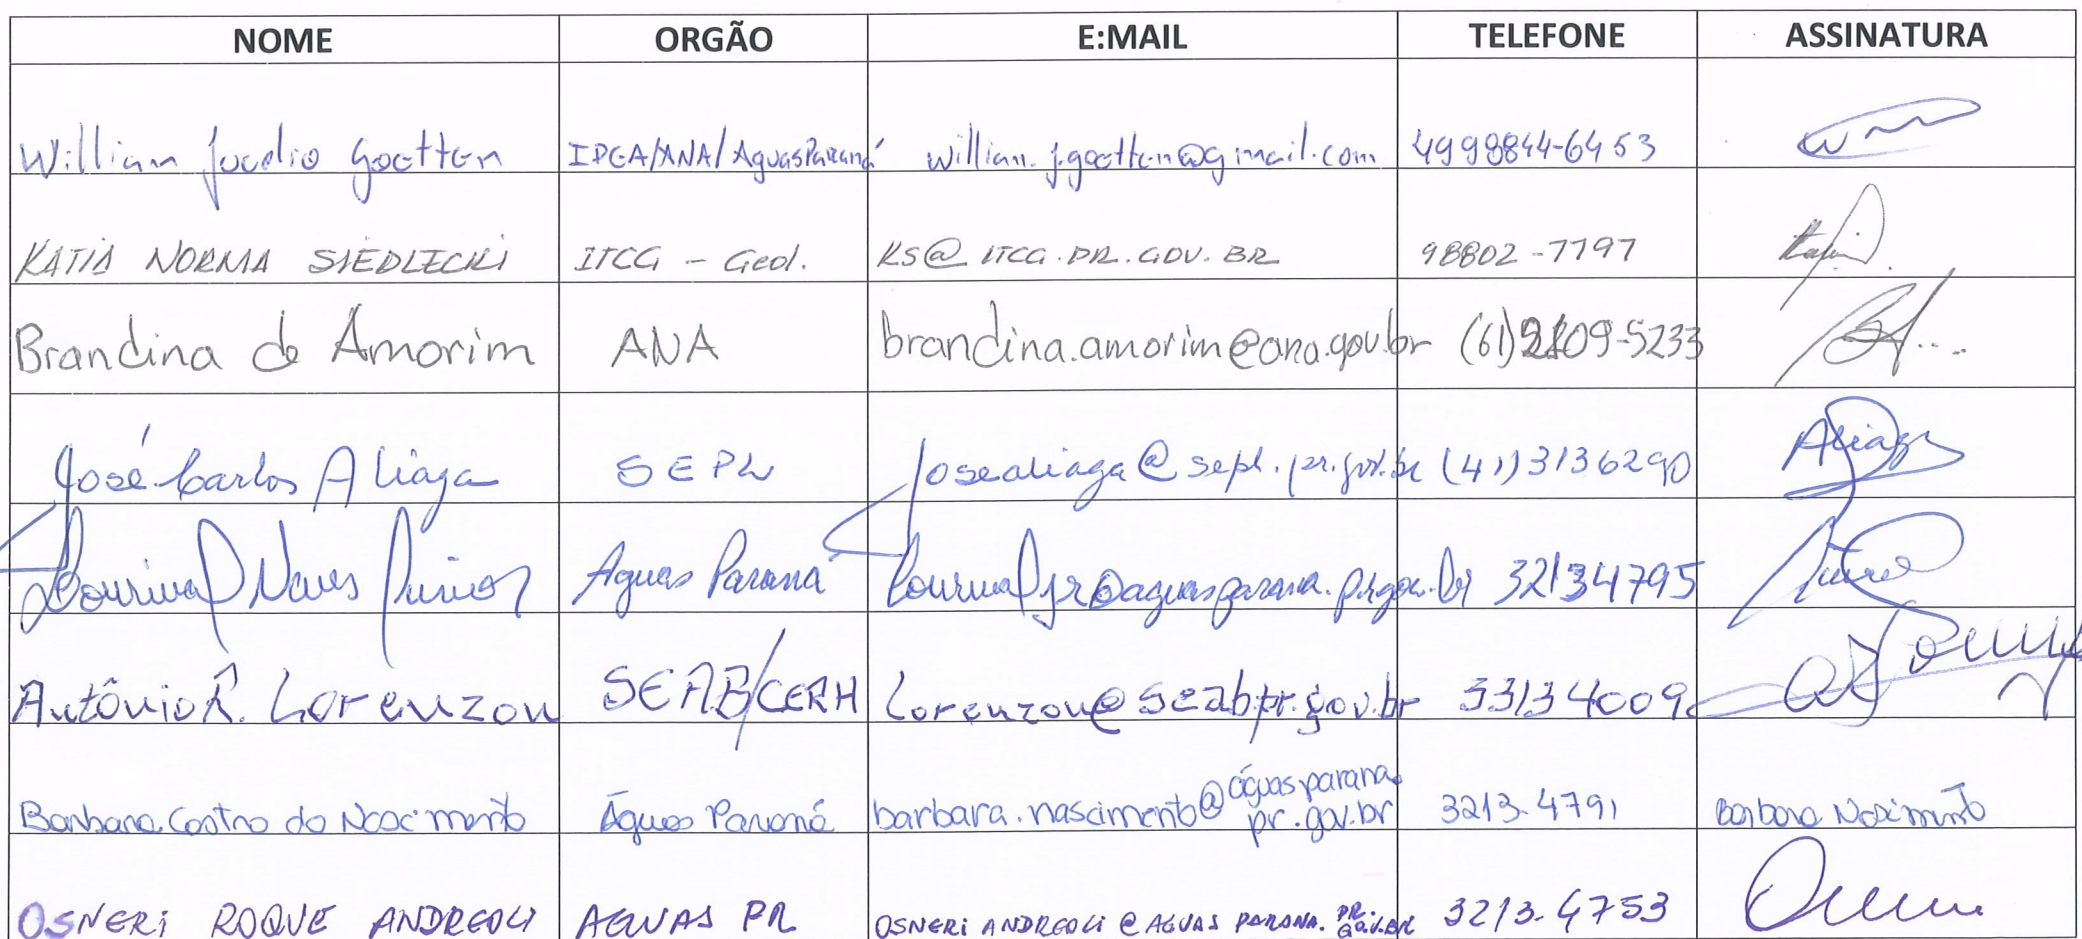 NOME ORGÃO E:MAIL TELEFONE ASSINATURA
Willian Jucelio Goetten IPEA/ANA/AguasParaná willian.j.goetten@gmail.com 4998844-6453
KATIA NORMA SIEDLECKI ITCG - Geol. KS@ITCG.PR.GOV.BR 98802-7797
Brandina de Amorim ANA brandina.amorim@ana.gov.br (61)2109-5233
José Carlos Aliaga SEPL josealiaga@sepl.pr.gov.br (41)3136290 Aliaga
Lourival Neves Junior Aguas Paraná lourivaljr@aguasparana.pr.gov.br 32134795
Antônio R. Lorenzon SEAB/CERH Lorenzon@seab.pr.gov.br 33134009
Barbara Castro do Nascimento Águas Paraná barbara.nascimento@águasparana. 3213-4791 Barbara Nascimento
pr.gov.br
OSNERI ROQUE ANDREOLI AGUAS PR OSNERIANDREOLI@AGUASPARANA.PR. 3213-4753
GOV.BR